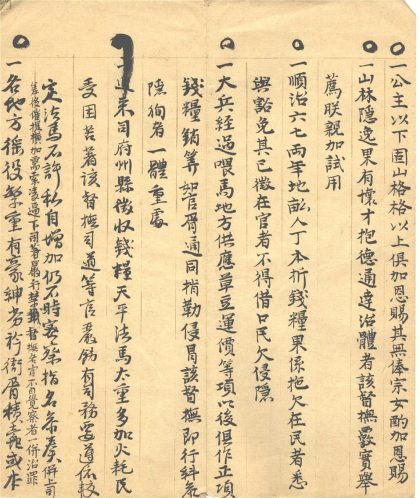 一公主以下固山格格以上俱加恩賜其無俸宗女酌加恩賜
一山林隱逸果有懷才抱德通達治體者該督撫覈實舉
薦朕親加試用
一順治六七兩年地畝人丁本折錢糧果係拖欠在民者悉
與豁免其已徵在官者不得借口民欠侵隱
一大兵經過喂馬地方供應草豆運價等項以後俱作正項
錢糧銷筭如官胥通同掯勒侵冒該督撫即行糾參
隱徇者一體重處
一近來司府州縣徵收錢糧天平法馬太重多加火耗民
受困苦著該督撫司道等官嚴飭有司務要遵依較
定法馬不許私自增加仍不時密察指名參奏併上司
下司者督撫不自覺察者一併治罪
一各地方徭役繁重有豪紳劣衿衙胥積蠹或本